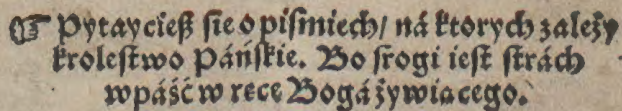 ☞ Pytaycieß ſie o piſmiech/ ná ktorych zależy
kroleſtwo Páńſkie. Bo ſrogi ieſt ſtrách
wpáść w rece Bogá żywiącego.